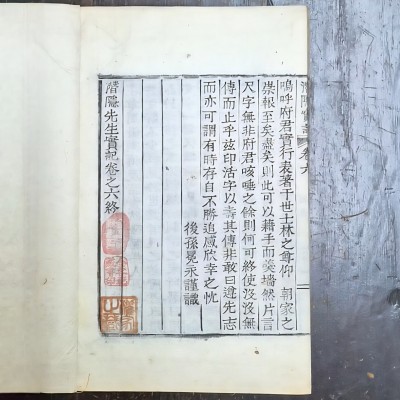 嗚呼府君實行表著于世士林之尊仰 朝家之
褒報至矣盡矣則此可以藉手而羹墻然片言
尺字無非府君咳唾之餘則何可終使沒沒無
傳而止乎玆印活字以壽其傳非敢曰遵先志
而亦可謂有時存自不勝追感欣幸之忱
後孫冕永謹識
潛隱先生實記卷之六終